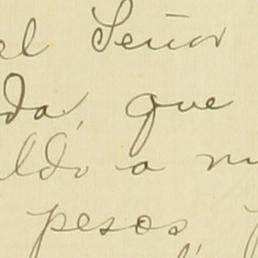 el Señor
da, que
ldo a
pesos,